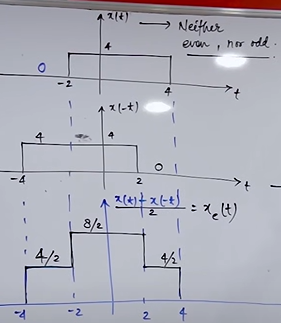 x(t) → Neither
even, nor odd.
4
0
-2 4 t
x(-t)
4 4
0
-4 2 t
x(t) + x(-t) / 2 = xₑ(t)
8/2
4/2 4/2
-4 -2 2 4